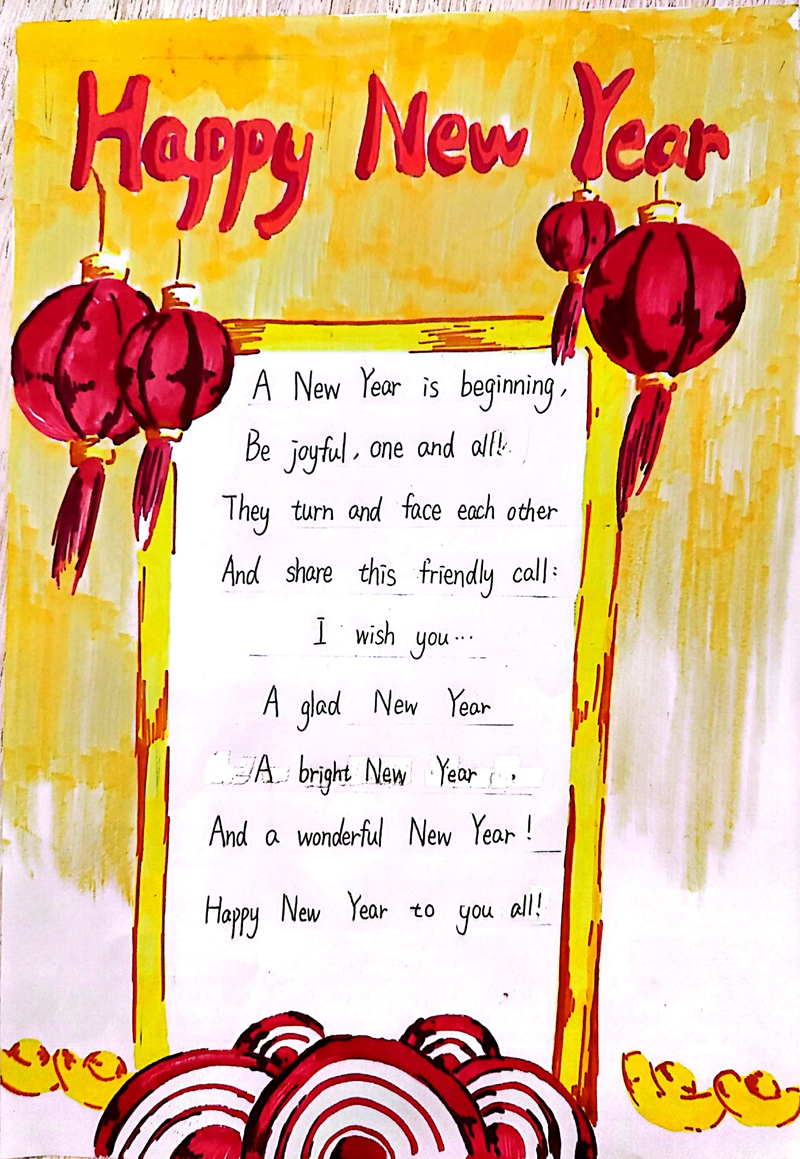 Happy New Year
A New Year is beginning,
Be joyful, one and all!
They turn and face each other
And share this friendly call:
I wish you...
A glad New Year
A bright New Year,
And a wonderful New Year!
Happy New Year to you all!